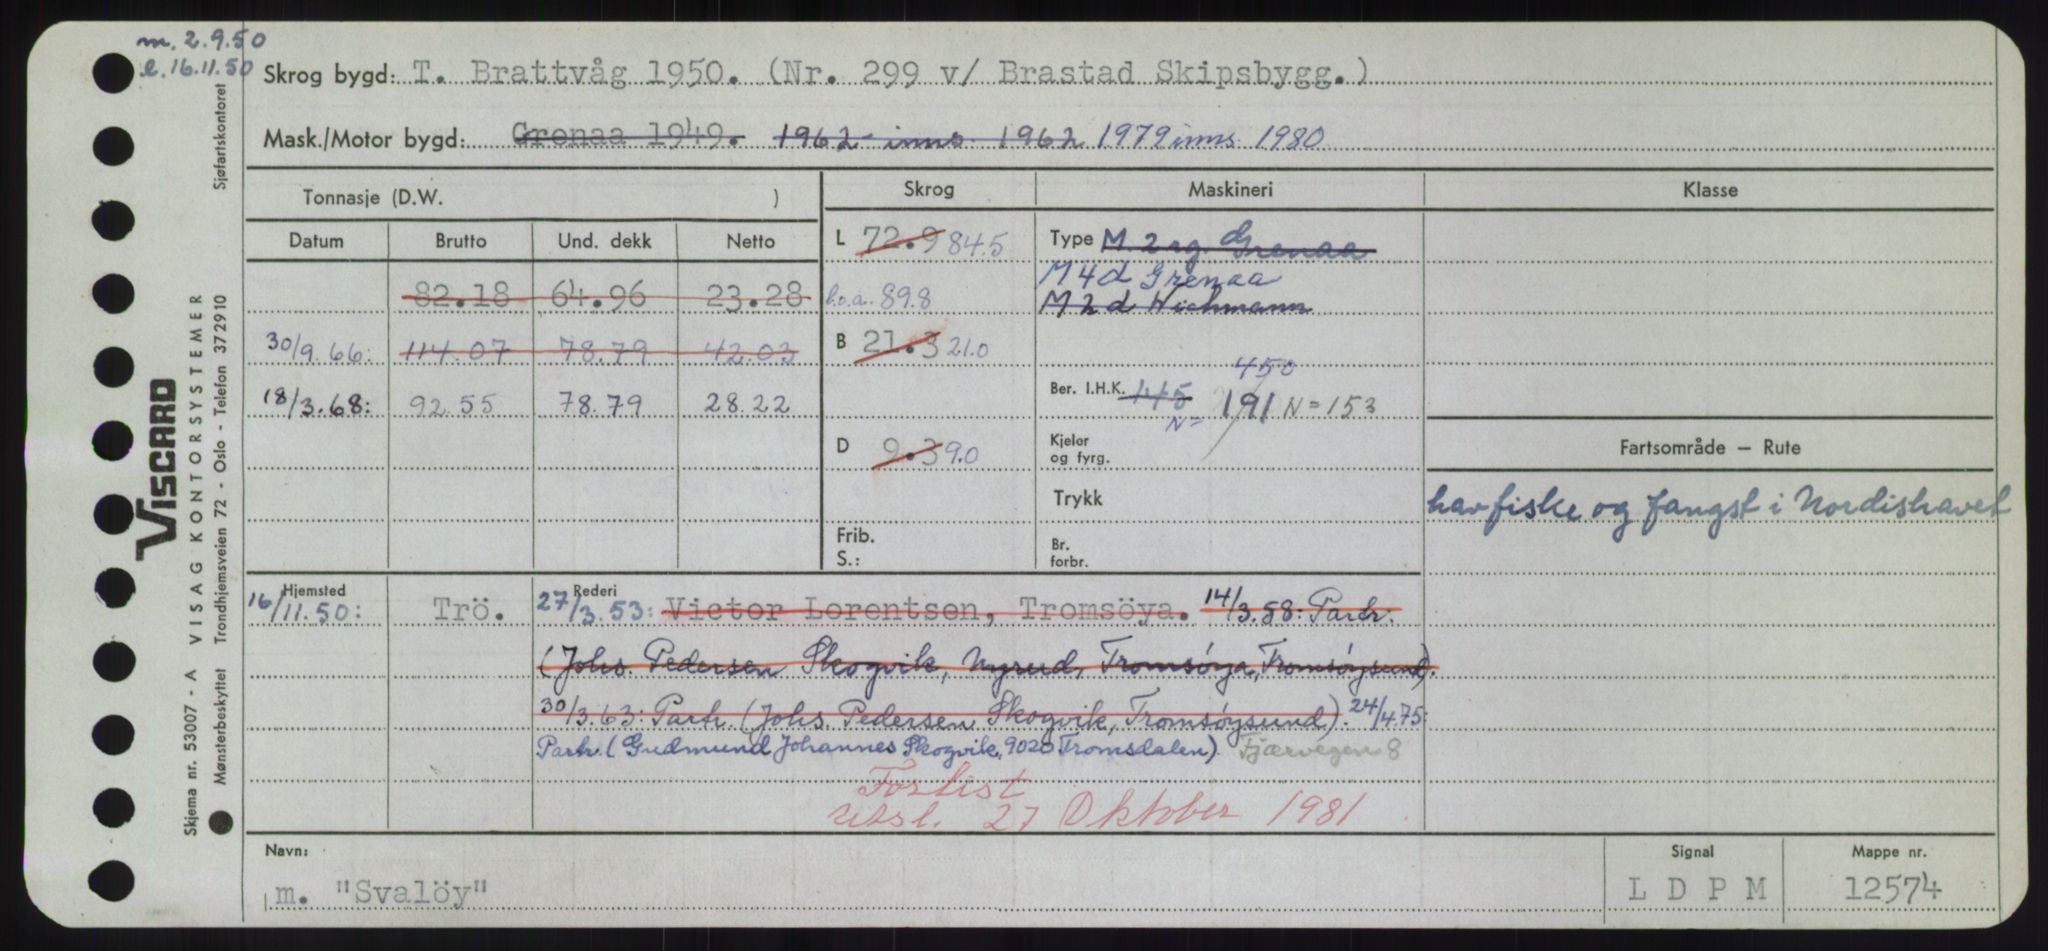 m. 2.9.50
l. 16.11.50
Skrog bygd: T. Brattvåg 1950. (Nr. 299 v/ Brastad Skipsbygg.)
Mask./Motor bygd: Grenaa 1949. 1962 - inns. 1962 1979 inns. 1980
Tonnasje (D.W. )
Skrog
Maskineri
Klasse
Datum Brutto Und. dekk Netto
82.18 64.96 23.28
30/9.66: 114.07 78.79 42.03
18/3.68: 92.55 78.79 28.22
L 72.9 84.5
l.o.a. 89.8
B 21.3 21.0
D 9.3 9.0
Frib.
S.:
Type M. 2 sg. Grenaa
M 4 d Grenaa
M 2 d Wichmann
450
Ber. I.H.K. 145 191 N=153
N=
Kjeler
og fyrg.
Trykk
Br.
forbr.
Fartsområde – Rute
havfiske og fangst i Nordishavet
Hjemsted
16/11.50: Trö.
Rederi
27/3.53: Victor Lorentsen, Tromsöya. 14/3.58: Partr.
(Johs. Pedersen Skogvik, Nyrud, Tromsøya, Tromsøysund).
30/3.63: Partr. (Johs. Pedersen Skogvik, Tromsøysund). 24/4.75:
Partr. (Gudmund Johannes Skogvik, 9020 Tromsdalen). Fjærvegen 8
Forlist
Utsl. 27 Oktober 1981.
Navn:
m. "Svalöy"
Signal
L D P M
Mappe nr.
12574
VISCARD
Skjema nr. 53007 - A VISAG KONTORSYSTEMER
Mønsterbeskyttet Trondhjemsveien 72 - Oslo - Telefon 372910
Sjøfartskontoret